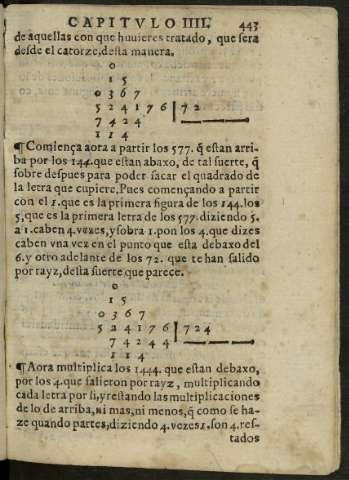 CAPITVLO IIII. 443
de aquellas con que huuieres tratado, que sera
desde el catorze, desta manera.
0
1 5
0 3 6 7
5 2 4 1 7 6 | 7 2
7 4 2 4
1 1 4
¶Comiença aora a partir los 577. q̃ estan arri-
ba por los 144. que estan abaxo, de tal suerte, q̃
sobre despues para poder sacar el quadrado de
la letra que cupiere, Pues començando a partir
con el 1. que es la primera figura de los 144. los
5, que es la primera letra de los 577. diziendo 5.
a 1. caben 4. vezes, y sobra 1. pon los 4. que dizes
caben vna vez en el punto que esta debaxo del
6. y otro adelante de los 72. que te han salido
por rayz, desta suerte que parece.
0
1 5
0 3 6 7
5 2 4 1 7 6 | 7 2 4
7 4 2 4 4
1 1 4
¶Aora multiplica los 1444. que estan debaxo,
por los 4. que salieron por rayz, multiplicando
cada letra por si, y restando las multiplicaciones
de lo de arriba, ni mas, ni menos, q̃ como se ha-
ze quando partes, diziendo 4. vezes 1. son 4. res-
tados